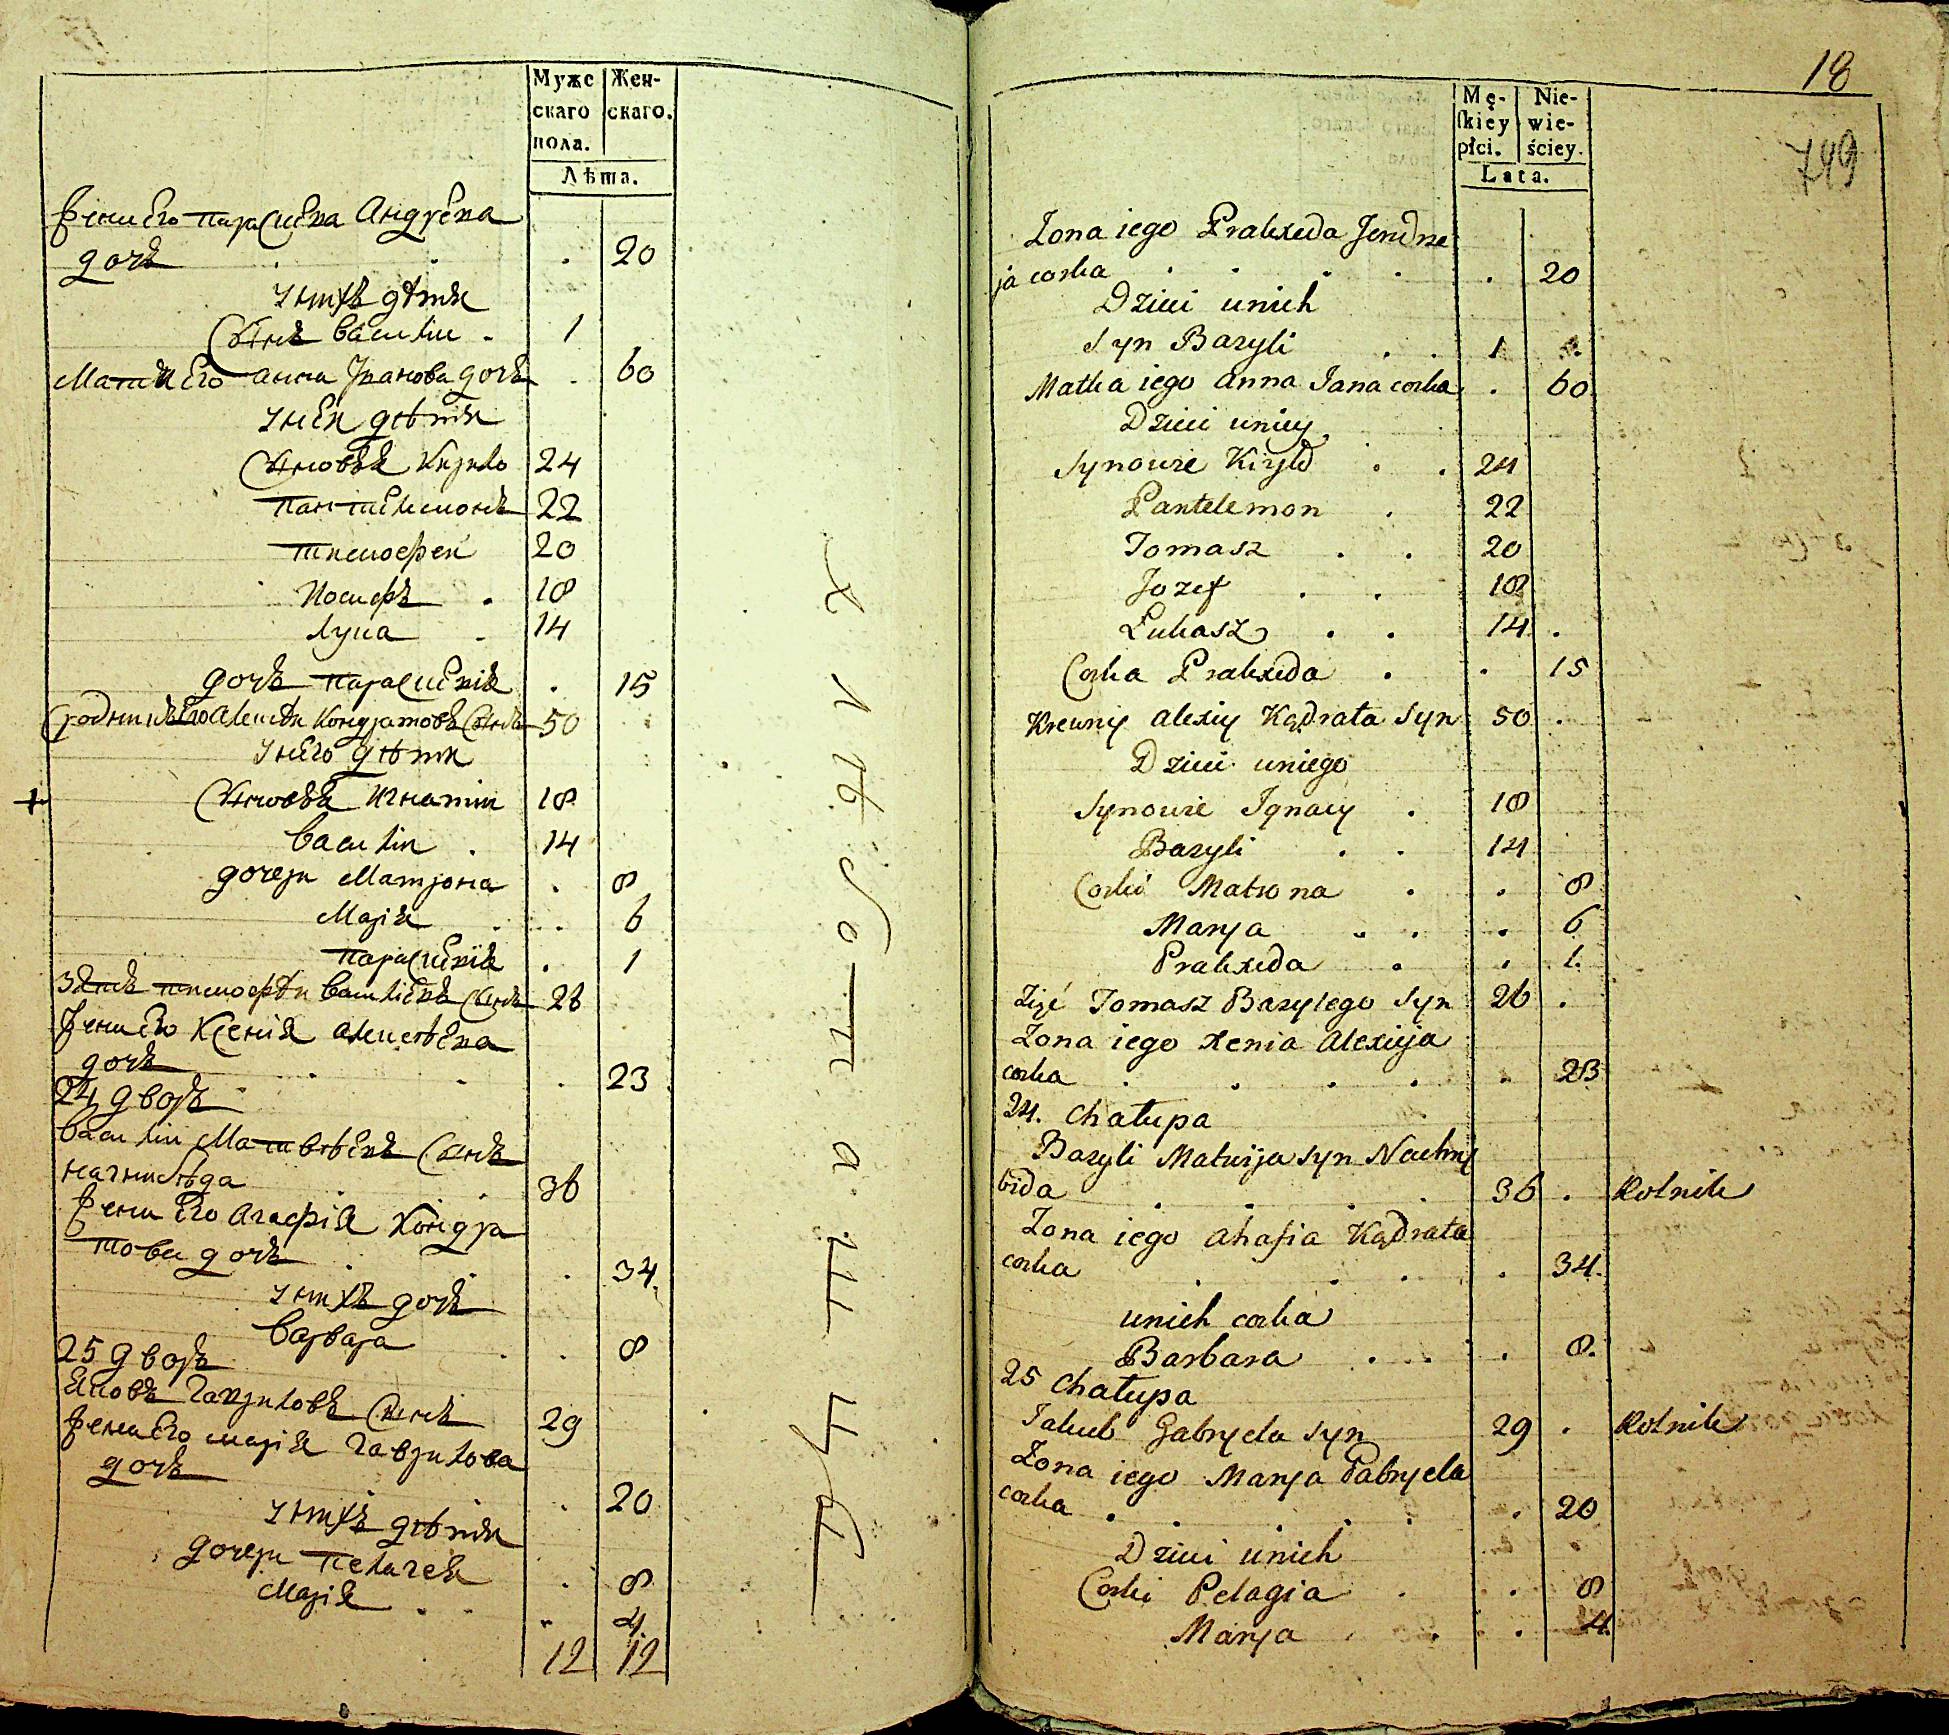 Мужс Жен-
скаго скаго.
пола.
Лѣта.
жена Его параскева Андреева
дочь . . . 20
У нихъ дѣти
Сынъ Василий . 1
Мати Его анна Иванова дочь . 60
У неи дѣти
Сыновья Кирило 24
пантелемонъ 22
тимофеи 20
Иосифъ . 18
лука . 14
дочь параскевия . 15
Сродникъ Его Алексѣи Кондратовъ Сынъ 50
У него дѣти
+ Сыновья Игнатии 18
Василии . 14
дочери Матрона . 8
Мария . . 6
параскевия . 1
Зять тимофѣи Василиевъ Сынъ 26
жена Его Ксения алексѣева
дочь . . . 23
24 дворъ
Василии Матвѣевъ Сынъ
начнибѣда . . 36
жена Его Агафия Кондра
това дочь . . . 34.
У нихъ дочь
Варвара . . 8
25 дворъ
Яковъ Гавриловъ Сынъ 29
жена Его мария Гаврилова
дочь . 20
У нихъ дѣти
дочери пелагея . 8
Мария . . . 4.
12 12
18
749
Mę- Nie-
skiey wie-
płci. ściey.
Lata.
Zona iego Praxeda Jendrze
ja corka . . . . . 20
Dzieci unich
Syn Bazyli . . 1
Matka iego anna Jana corka . 60
Dzieci uniey
Synowie Kiryło . . 24
Pantelemon . 22
Tomasz . . 20
Jozef . . 18
Łukasz . . 14 .
Corka Prakseda . . 15
Krewny alexiy Kądrata Syn 50 .
Dzieci uniego
Synowie Ignacy . 18
Bazyli . . 14
Corki Matrona . . 8
Marya . . . 6
Prakseda . . 1.
Zięć Tomasz Bazylego Syn 26 .
Zona iego Xenia Alexieja
corka . . . . . 23
24. Chałupa
Bazyli Matwija Syn Naczny
bida . . . . . 36 . Rolnik
Zona iego ahafia Kądrata
corka . . . . 34.
unich corka
Barbara . . . . 8.
25 Chałupa
Jakub Gabryela Syn 29 . Rolnik
Zona iego Marya Gabryela
corka . . . . . . 20
Dzieci unich
Corki Pelagia . . 8
Marya . . . 4.